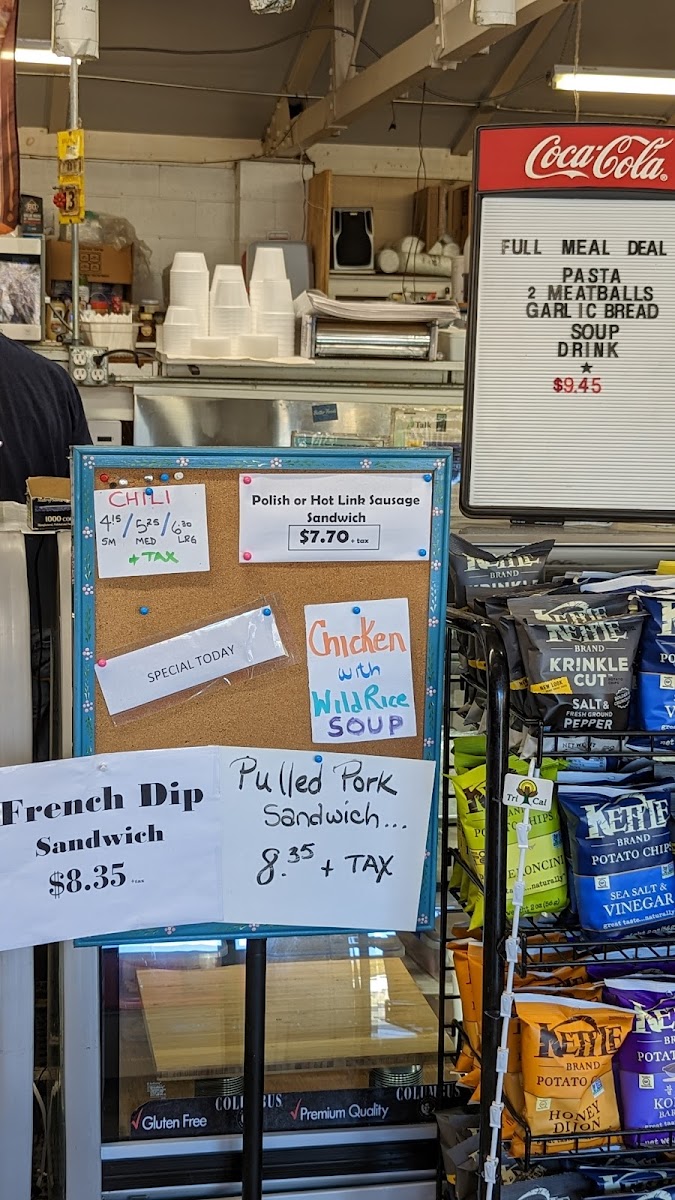 Coca-Cola
FULL MEAL DEAL
PASTA
2 MEATBALLS
GARLIC BREAD
SOUP
DRINK
$9.45
CHILI
4.15/5.25/6.30
SM MED LRG
+ TAX
Polish or Hot Link Sausage
Sandwich
$7.70 + tax
SPECIAL TODAY
Chicken
with
Wild Rice
SOUP
French Dip
Sandwich
$8.35 + tax
Pulled Pork
Sandwich...
8.35 + TAX
BRAND
KETTLE
BRAND
KRINKLE
CUT
NEW LOOK
SALT &
FRESH GROUND
PEPPER
Tri Cal
KETTLE
BRAND
POTATO CHIPS
SEA SALT &
VINEGAR
great taste...naturally
KETTLE
BRAND
POTATO
HONEY
DIJON
COLUMBUS
Gluten Free
Premium Quality